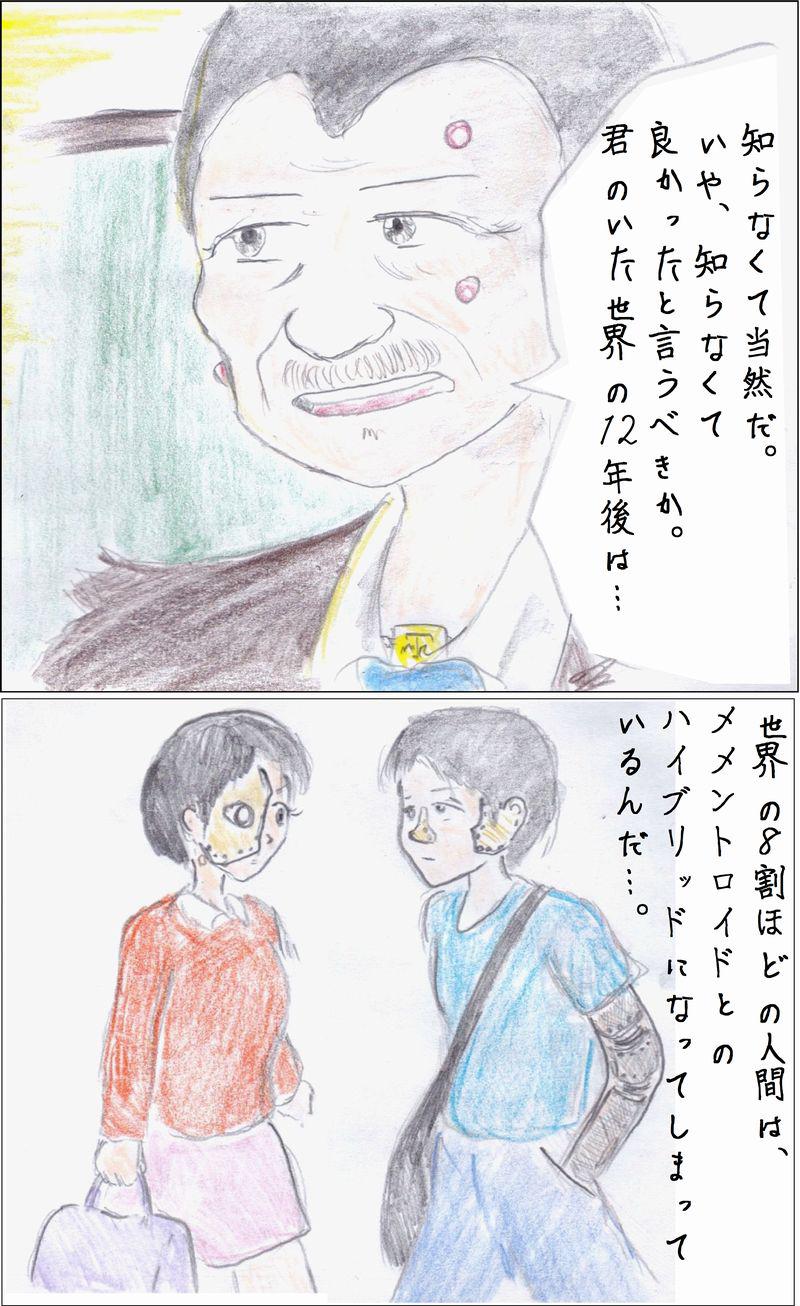 知らなくて当然だ。
いや、知らなくて
良かったと言うべきか。
君のいた世界の12年後は…
世界の8割ほどの人間は、
メメントロイドとの
ハイブリッドになってしまって
いるんだ…。